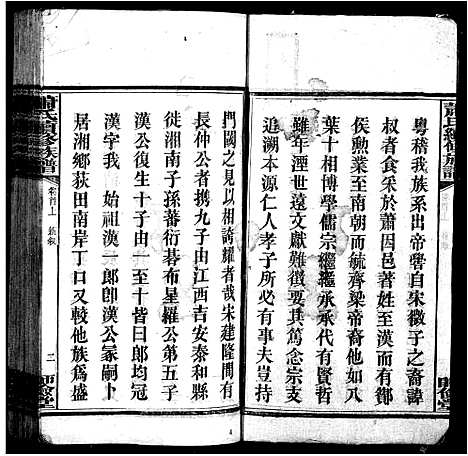 蕭氏續修族譜
粵稽我族系出帝嚳自宋微子之裔諱
叔者食采於蕭因邑著姓至漢而有酇
侯勲業至南朝而毓齊梁帝裔他如八
葉十相博學儒宗繼繼承承代有賢哲
雖年湮世遠文獻難徵要其篤念宗支
追溯本源仁人孝子所必有事夫豈持
師儉堂
門國之見以相誇耀者哉宋建隆間有
長仲公者携九子由江西吉安泰和縣
徙湘南子孫蕃衍碁布星羅公第五子
漢公復生十子由一至十皆曰郎均冠
漢字我　始祖漢一郎卽漢公冡嗣卜
居湘鄉荻田南岸丁口又較他族爲盛
蕭氏續修族譜
卷首上
二
師儉堂